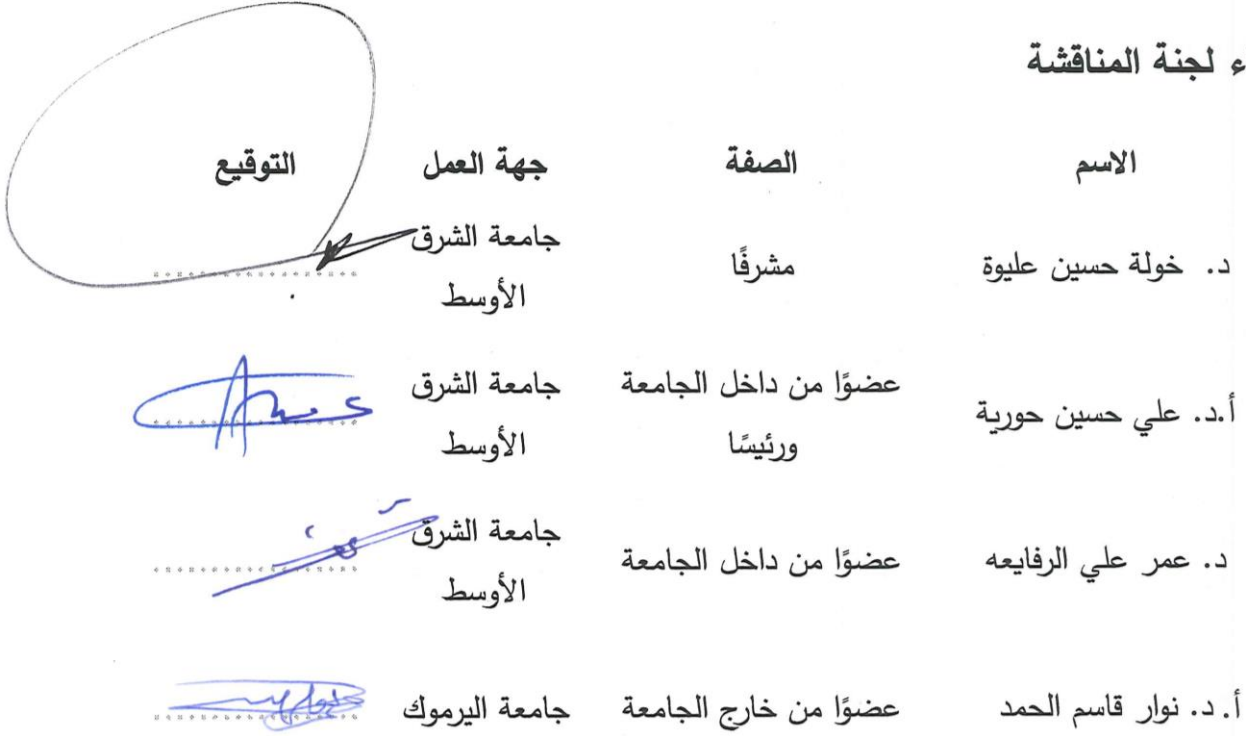 ء لجنة المناقشة
الاسم الصفة جهة العمل التوقيع
د. خولة حسين عليوة مشرفًا جامعة الشرق الأوسط
أ.د. علي حسين حورية عضوًا من داخل الجامعة ورئيسًا جامعة الشرق الأوسط
د. عمر علي الرفايعه عضوًا من داخل الجامعة جامعة الشرق الأوسط
أ.د. نوار قاسم الحمد عضوًا من خارج الجامعة جامعة اليرموك